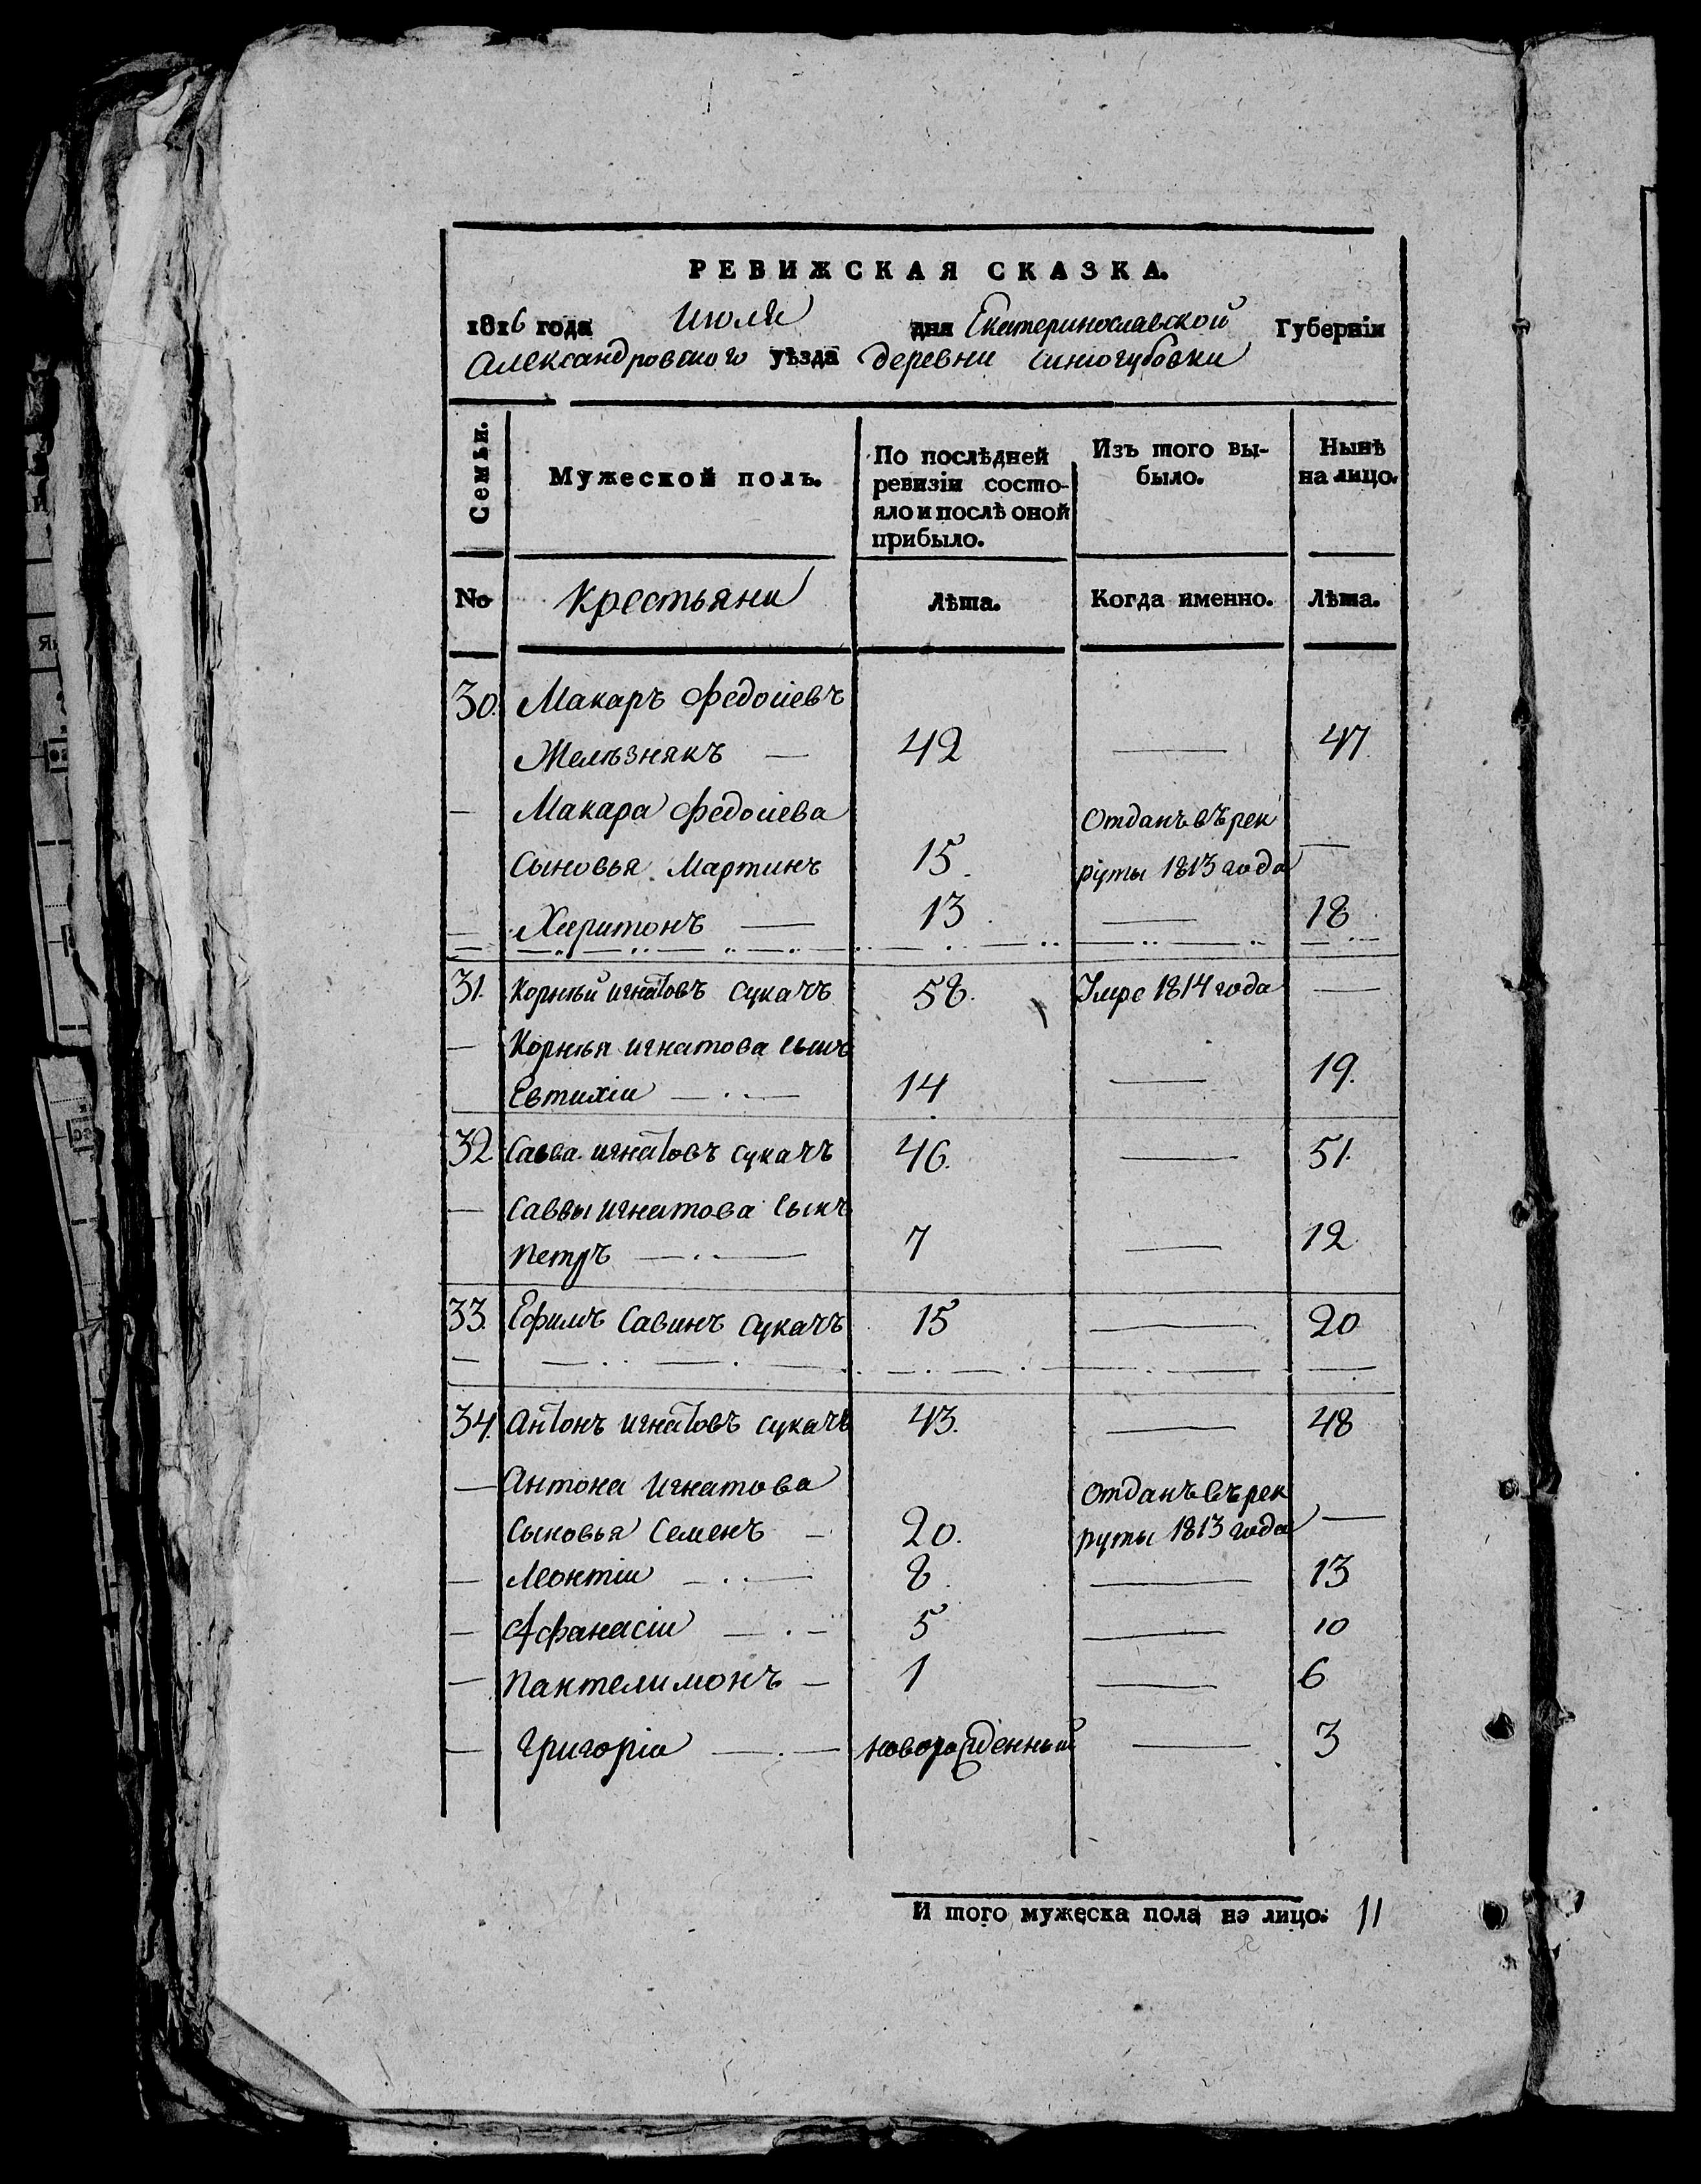 РЕВИЖСКАЯ СКАЗКА.
1816 года Июля дня Екатеринославской Губерніи
Александровского уѣзда деревни Синюгубовки
Семьи.
Мужеской полъ.
По послѣдней
ревизіи состо-
яло и послѣ оной
прибыло.
Изъ того вы-
было.
Нынѣ
на лицо.
No Крестьяни Лѣта. Когда именно. Лѣта.
30. Макаръ Федосіевъ
Желѣзнякъ — 42 — 47
— Макара Федосіева Отданъ въ рек
Сыновья Мартинъ 15. руты 1813 года —
— Харитонъ — 13. — 18
31. Корнѣй игнатовъ Сукачъ 58. Умре 1814 года —
— Корнѣя игнатова сынъ
Евтихіи — 14 — 19.
32 Савва игнатовъ Сукачъ 46. — 51.
— Саввы игнатова Сынъ
Петръ — 7 — 12
33. Ефимъ Савинъ Сукачъ 15 — 20
34. Антонъ игнатовъ Сукачъ 43. — 48
— Антона Игнатова Отданъ въ рек
Сыновья Семенъ — 20. руты 1813 года —
— Леонтіи — 8. — 13
— Афанасіи — 5 — 10
— Пантелимонъ — 1 — 6
— Григоріи — новорожденный — 3
И того мужеска пола на лицо: 11